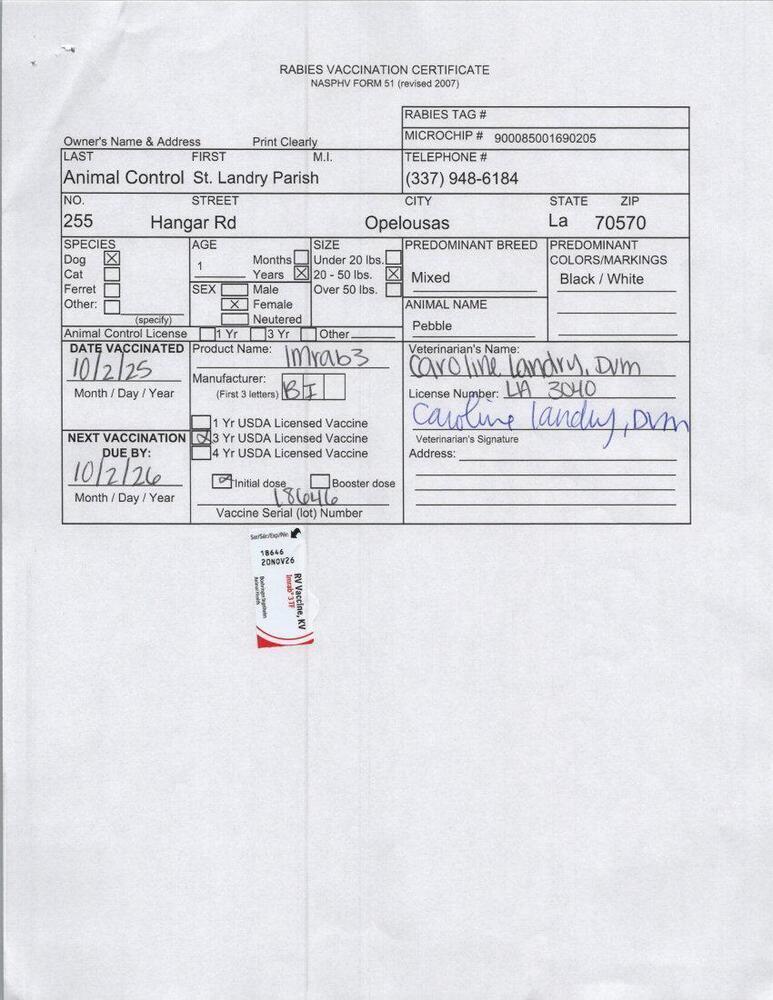 RABIES VACCINATION CERTIFICATE
NASPHV FORM 51 (revised 2007)
RABIES TAG #
MICROCHIP # 900085001690205
Owner's Name & Address Print Clearly
LAST FIRST M.I. TELEPHONE #
Animal Control St. Landry Parish (337) 948-6184
NO. STREET CITY STATE ZIP
255 Hangar Rd Opelousas La 70570
SPECIES AGE SIZE PREDOMINANT BREED PREDOMINANT
Dog Months Under 20 lbs. COLORS/MARKINGS
Cat 1 Years 20 - 50 lbs. Mixed Black / White
Ferret SEX Male Over 50 lbs.
Other: Female ANIMAL NAME
(specify) Neutered Pebble
Animal Control License 1 Yr 3 Yr Other
DATE VACCINATED Product Name: Imrab3 Veterinarian's Name:
10/2/25 Caroline Landry, Dvm
Month / Day / Year Manufacturer: License Number: LA 3040
(First 3 letters) BI
1 Yr USDA Licensed Vaccine Caroline Landry, Dvm
NEXT VACCINATION 3 Yr USDA Licensed Vaccine Veterinarian's Signature
DUE BY: 4 Yr USDA Licensed Vaccine Address:
10/2/26 Initial dose Booster dose
Month / Day / Year 18646
Vaccine Serial (lot) Number
Ser/Sér/Exp/Niv
18646
20NOV26
RV Vaccine, KV
Imrab® 3 TF
Boehringer Ingelheim
Animal Health